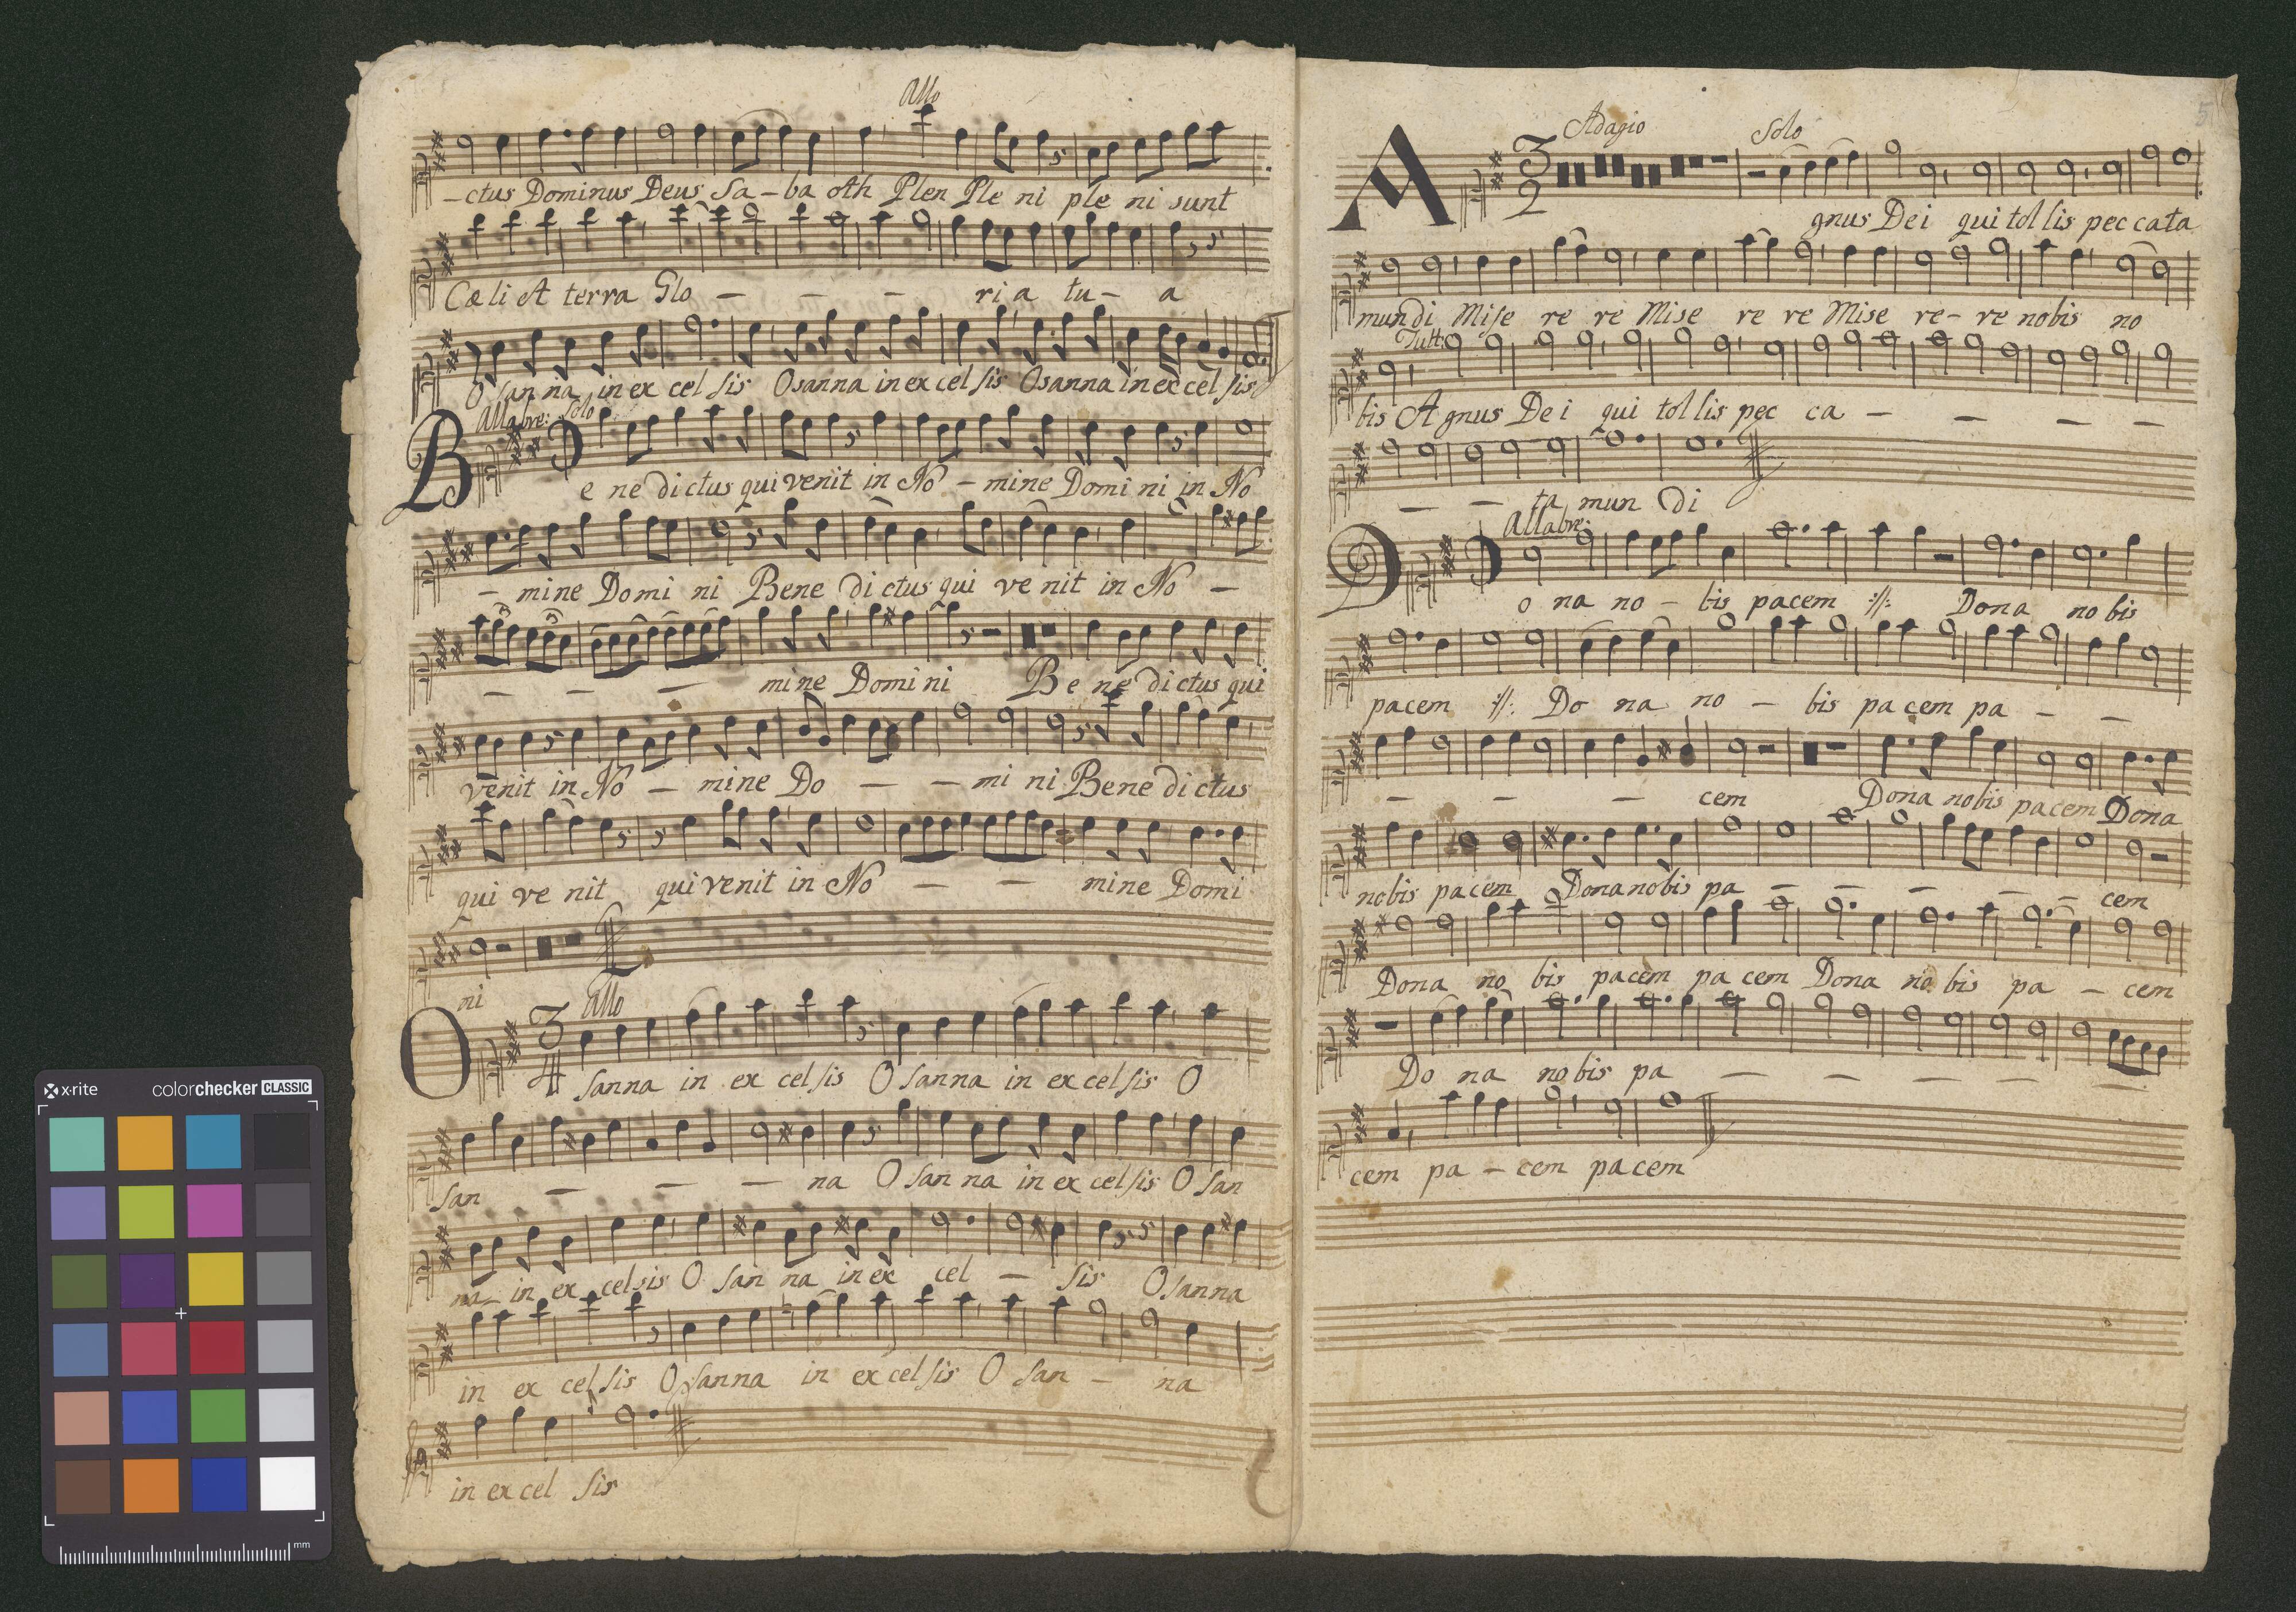 Allo
-ctus Dominus Deus Sa-ba oth Plen Ple ni ple ni sunt
Cæli et terra Glo - - - ri a tu- a
O san na in ex cel sis Osanna in ex cel sis Osanna in ex cel sis
Allabre: Solo
B e ne dictus qui venit in No - mine Domi ni in No
- mine Domi ni Bene dictus qui ve nit in No -
- - - mine Domi ni Be ne dictus qui
venit in No - mine Do - - mi ni Bene dictus
qui ve nit qui venit in No - - mine Domi
ni
3/4 Allo
O sanna in ex cel sis O sanna in ex cel sis O
san - - - na O san na in ex cel sis O san
na- in ex celsis O san na in ex cel - sis O sanna
in ex cel sis O sanna in ex cel sis O san - na
in ex cel sis
5
3/2 Adagio Solo
A gnus Dei qui tol lis pec cata
mundi Mise re re Mise re re Mise re- re nobis no
Tutti
bis A gnus De i qui tol lis pec ca - - - -
- - ta mun di
Allabre:
D o na no - bis pacem :||: Dona no bis
pacem :||: Do na no - bis pa cem pa - -
- - - cem Dona nobis pacem Dona
nobis pacem Dona nobis pa - - - - - cem
Dona no bis pacem pa cem Dona no bis pa - cem
Do na no bis pa - - - - -
cem pa - cem pa cem
x-rite colorchecker CLASSIC
mm